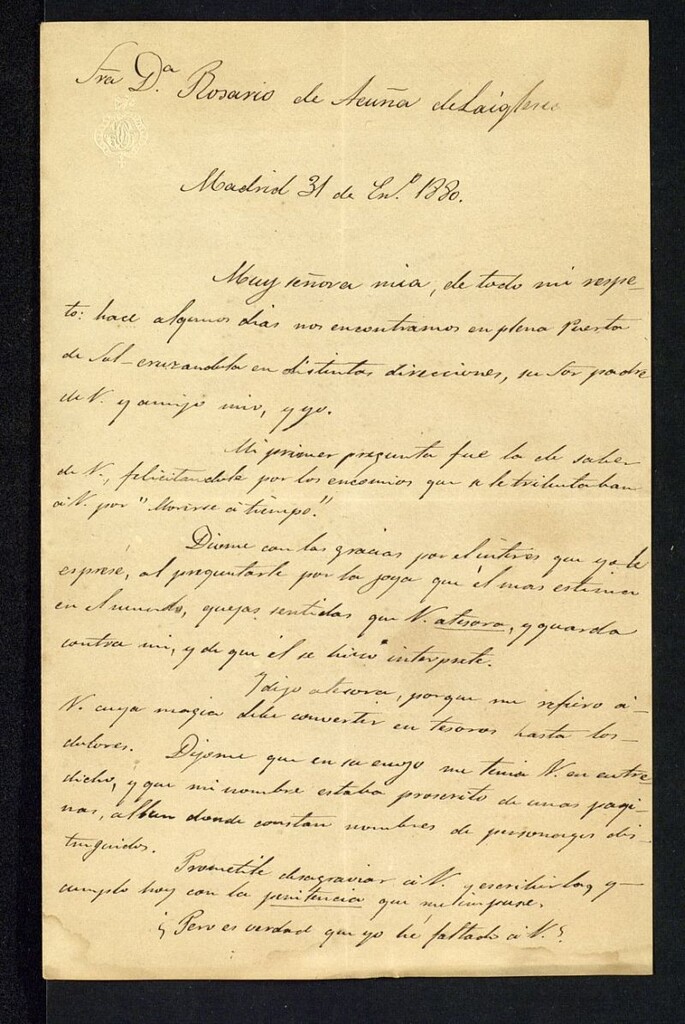 Sra D.ª Rosario de Acuña de Laiglesia
Madrid 31 de En.º 1880.
Muy señora mia, de todo mi respe-
to: hace algunos dias nos encontramos en plena Puerta
de Sol cruzandola en distintas direcciones, su Sor padre
de V. y amigo mio, y yo.
Mi primer pregunta fue la de saber
de V., felicitandole por los encomios que se le tributaban
á V. por "Morirse á tiempo."
Diome con las gracias por el interes que yo le
esprese, al preguntarle por la joya que él mas estima
en el mundo, quejas sentidas que V. atesora, y guarda
contra mi, y de que él se hizo interprete.
Y digo atesora, porque me refiero á
V. cuya magia debe convertir en tesoros hasta los
dolores. Dijome que en su enojo me tenia V. en entre
dicho, y que mi nombre estaba proscrito de unas pagi-
nas, album donde constan nombres de personages dis-
tinguidos.
Prometile desagraviar á V. y escribirla, y
cumplo hoy con la penitencia que me impuse.
¿Pero es verdad que yo hé faltado á V.?